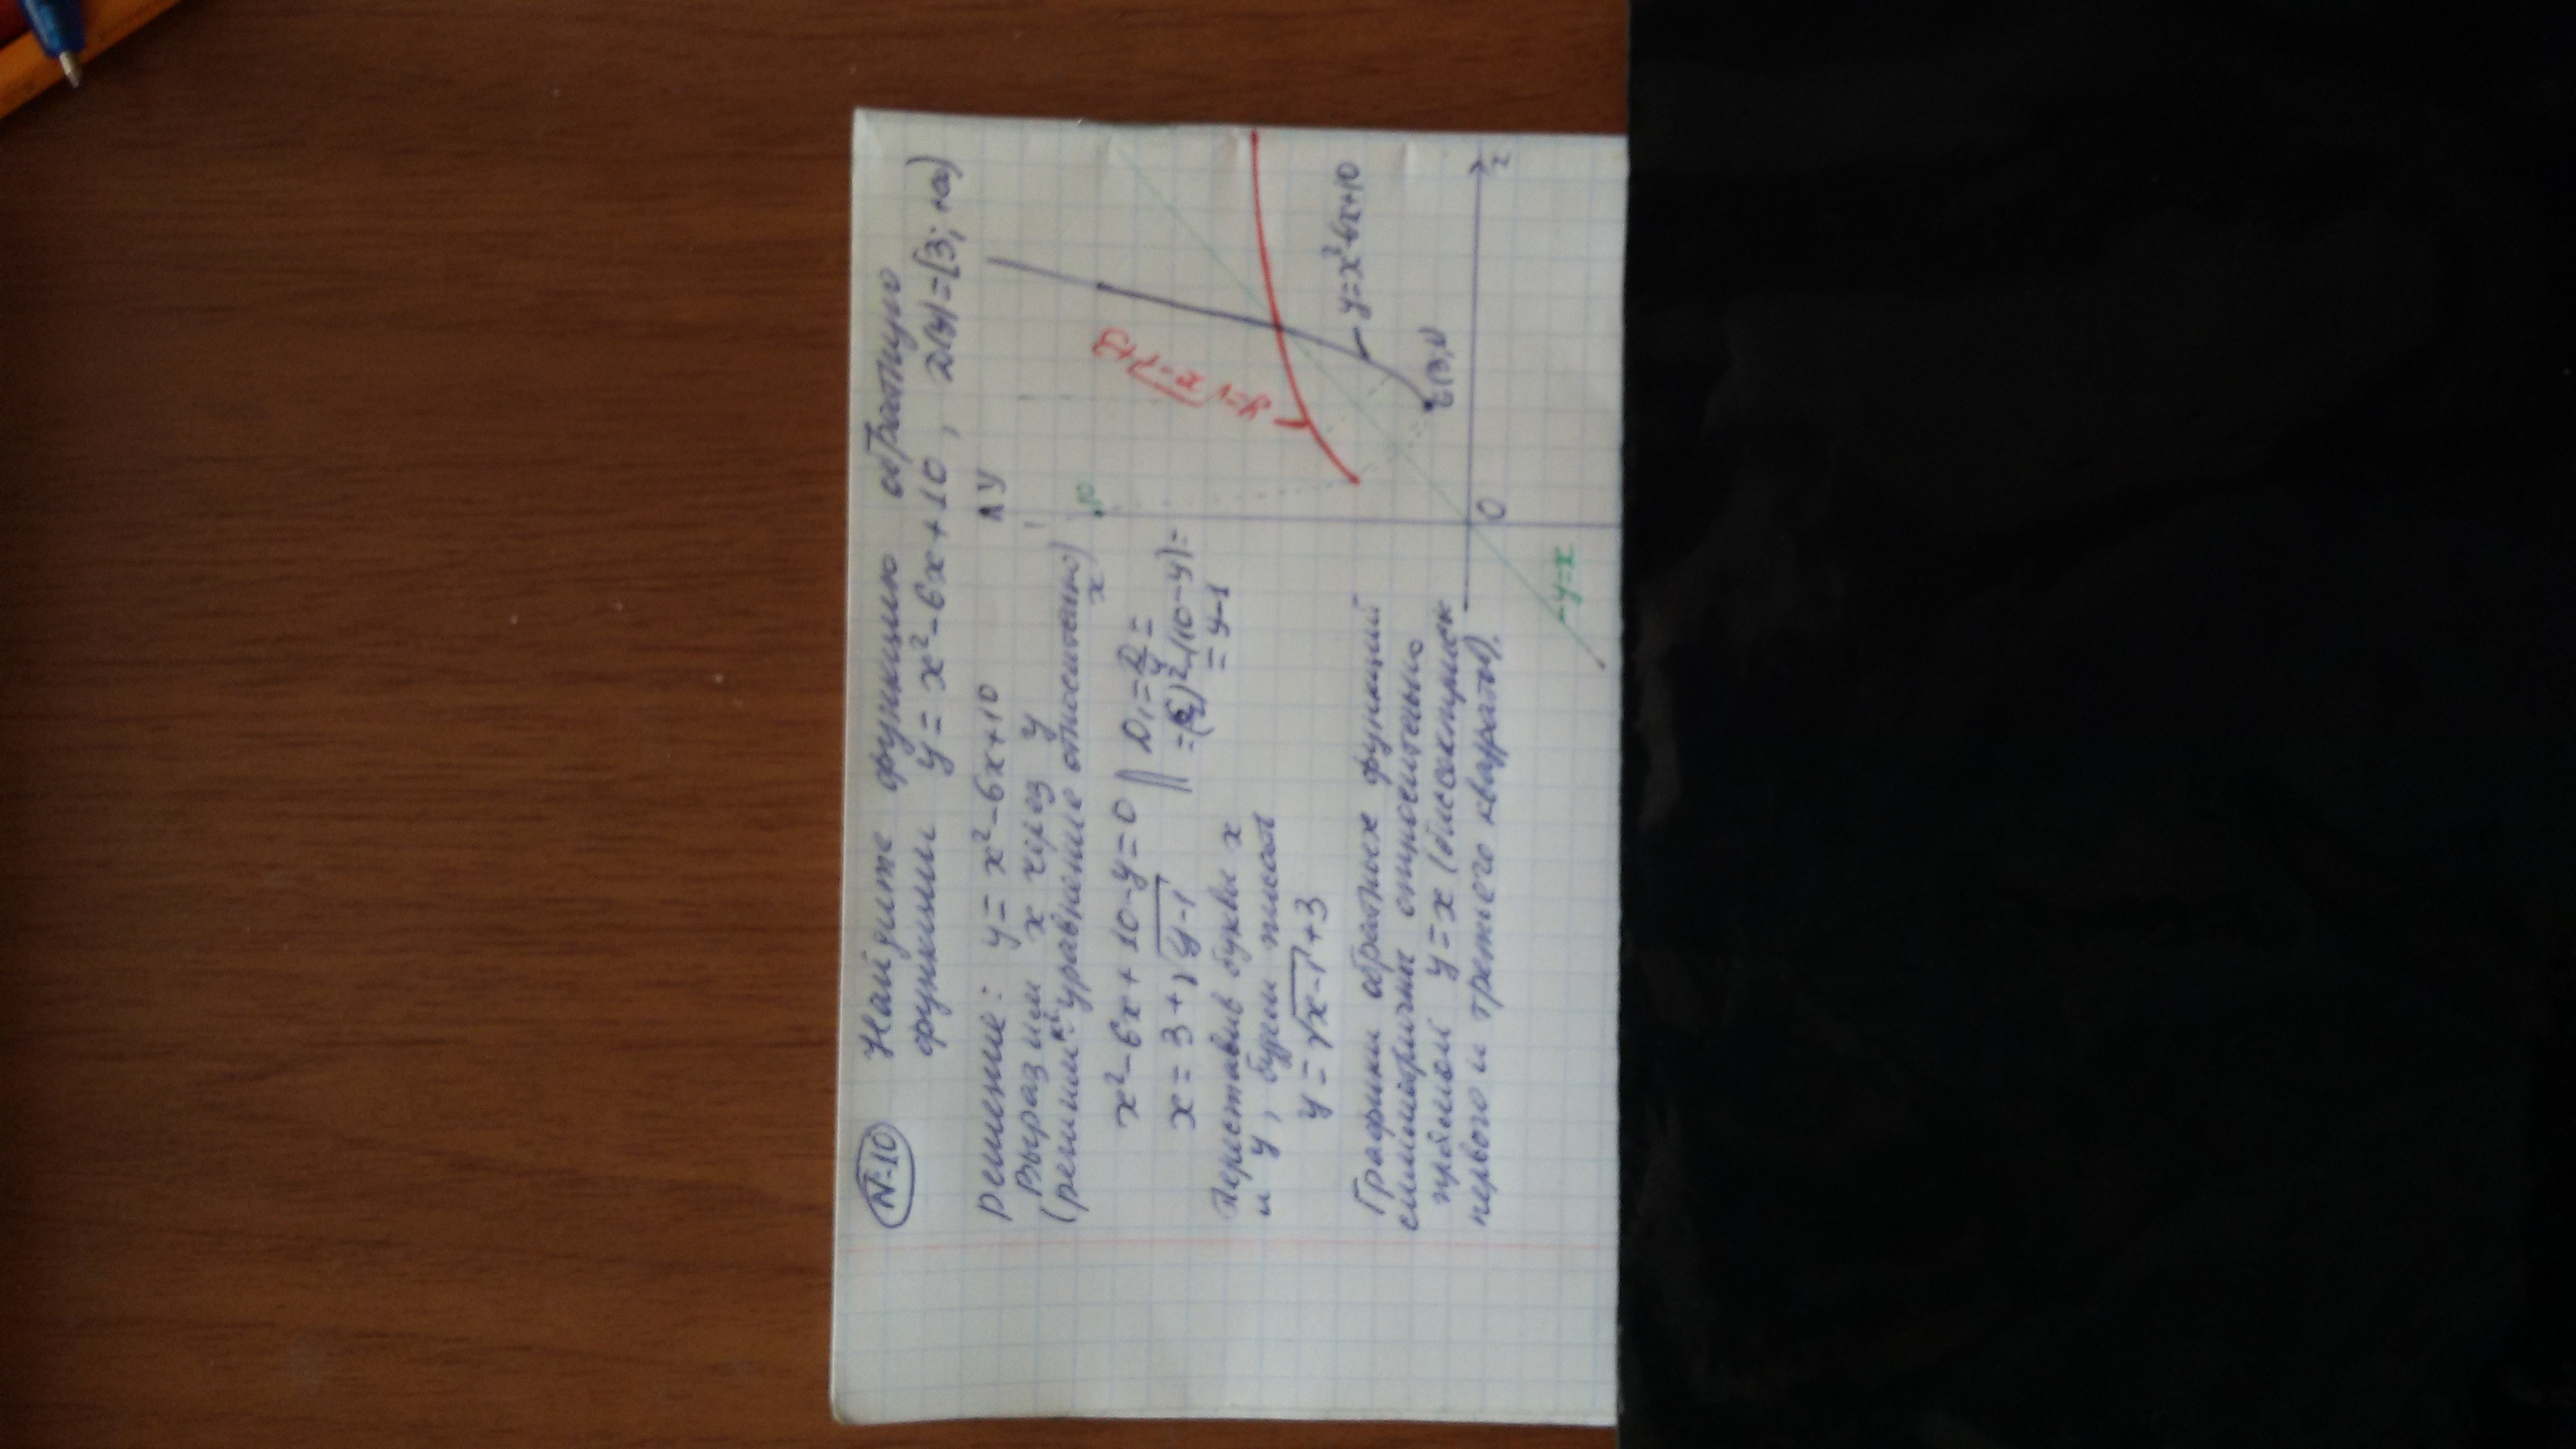 N-10 Найдите функцию обратную
функции y = x² - 6x + 10, D(y) = [3; +∞)
Решение: y = x² - 6x + 10
Выразим x через y
(решим кв. уравнение относительно x)
x² - 6x + 10 - y = 0 || D₁ = D/4 =
= (6/2)² - (10 - y) =
= y - 1
x = 3 + √y-1
Переставив буквы x
и y, будем писать
y = √x-1 + 3
Графики обратных функций
симметричны относительно
прямой y = x (биссектрисы
первого и третьего квадраты).
y
10
y = √x-1 + 3
y = x² - 6x + 10
(3;1)
0
x
y = x